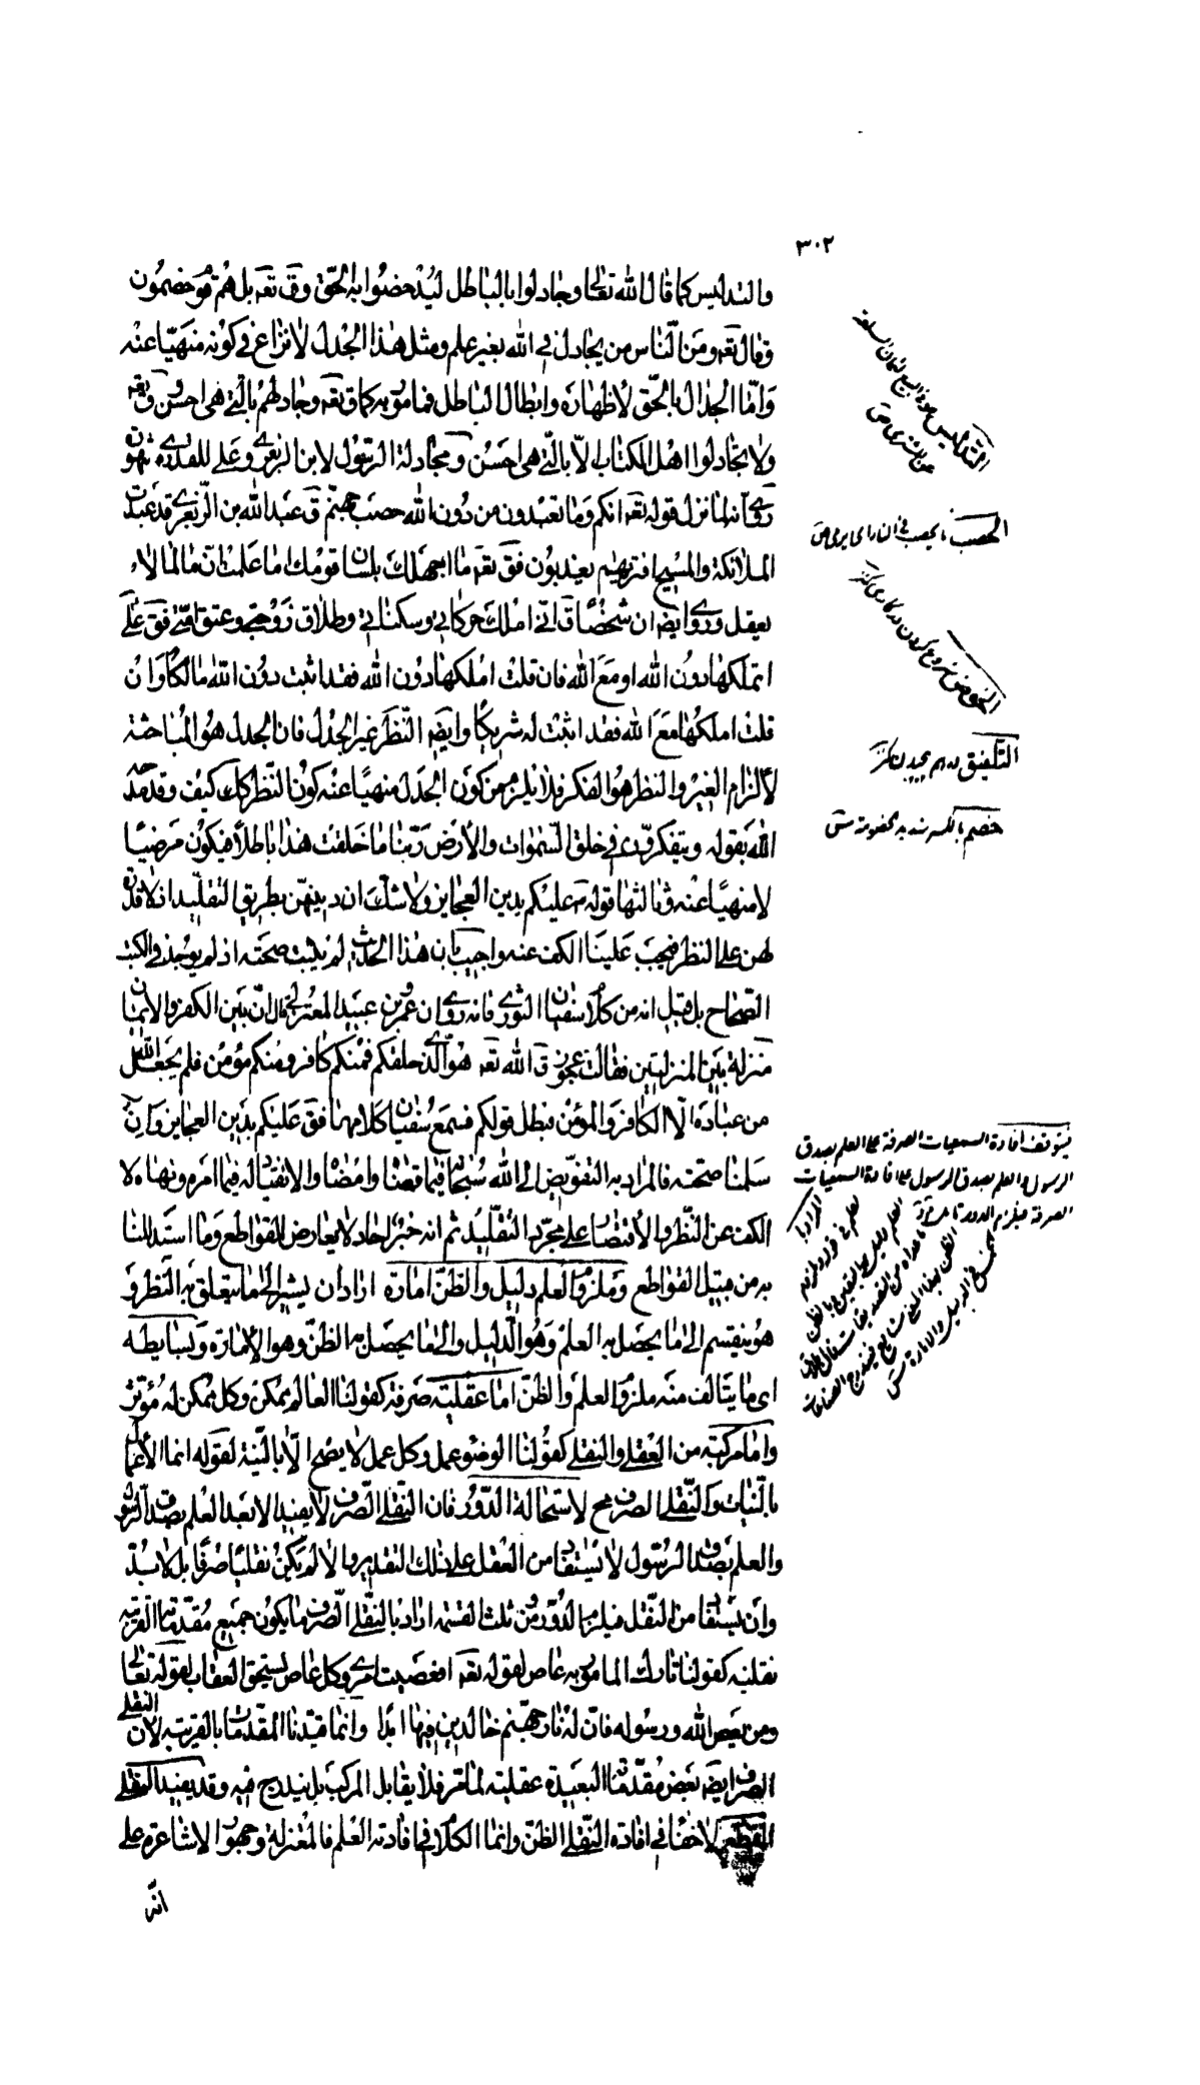 ٣٠٢
والتدليس كما قال الله تعالى وجادلوا بالباطل ليدحضوا به الحق وق تعه بل هم قوم خصمون
وقال تعه ومن الناس من يجادل في الله بغير علم ومثل هذا الجدل لا نزاع في كونه منهيا عنه
واما الجدال بالحق لاظهاره وابطال الباطل فمامور به كما ق تعه وجادلهم بالتي هي احسن وق تعه
ولا تجادلوا اهل الكتاب الا بالتي هي احسن ومجادلة الرسول لابن الزبعرى وعلي للقدري مشهورة
روى انه لما نزل قوله تعه انكم وما تعبدون من دون الله حصب جهنم ق عبد الله بن الزبعرى قد عبدت
الملائكة والمسيح افتريهم يعذبون فق تعه ما اجهلك بلسان قومك اما علمت ان ما لما لا
يعقل وروى ايضه ان شخصا ق اني املك حركاتي وسكناتي وطلاق زوجتي وعتق امتي فق علي
اتملكها دون الله او مع الله فان قلت املكها دون الله فقد اثبت دون الله مالكا وان
قلت املكها مع الله فقد اثبت له شريكا وايضه النظر غير الجدل فان الجدل هو المباحثة
لالزام الغير والنظر هو الفكر فلا يلزم من كون الجدل منهيا عنه كون النظر كك كيف وقد مدحه
الله بقوله ويتفكرون في خلق السموات والارض ربنا ما خلقت هذا باطلا فيكون مرضيا
لا منهيا عنه وثالثها قوله عليكم بدين العجايز ولا شك ان دينهن بطريق التقليد اذ لا قدرة
لهن على النظر فيجب علينا الكف عنه واجيب بان هذا الحديث لم يثبت صحته اذ لم يوجد في الكتب
الصحاح بل قيل انه من كلام سفيان الثوري فانه روى ان عمرو بن عبيد المعتزلي قال ان بين الكفر والايمان
منزلة بين المنزلتين فقالت عجوز ق الله تعه هو الذي خلقكم فمنكم كافر ومنكم مؤمن فلم يجعل الله
من عباده الا الكافر والمؤمن فبطل قولكم فسمع سفيان كلامها فق عليكم بدين العجايز وان
سلمنا صحته فالمراد به التفويض الى الله سبحانه فيما قضاه وامضاه والانقياد له فيما امره ونهاه لا
الكف عن النظر والاقتصار على مجرد التقليد ثم انه خبر احاد لا يعارض القواطع وما استدللنا
به من قبيل القواطع وملزوم العلم دليل والظن امارة اراد ان يشير الى ما يتعلق به النظر و
هو ينقسم الى ما يحصل به العلم وهو الدليل والى ما يحصل به الظن وهو الامارة وبسايطه
اى ما يتالف منه ملزوم العلم والظن اما عقلية صرفة كقولنا العالم ممكن وكل ممكن له مؤثر
واما مركبة من العقلي والنقلي كقولنا الوضوء عمل وكل عمل لا يصح الا بالنية لقوله انما الاعمال
بالنيات والنقلي الصرف مح لاستحالة الدور فان النقلي الصرف لا يفيد الا بعد العلم بصدق الرسول
والعلم بصدق الرسول لا يستفاد من العقل على ذلك التقدير والا لم يكن نقليا صرفا بل لا بد
وان يستفاد من النقل فيلزم الدور ومن ثلث القسمة اراد بالنقلي الصرف ما يكون جميع مقدماته القريبة
نقلية كقولنا تارك المامور به عاص لقوله تعه افعصيت امري وكل عاص يستحق العقاب لقوله تعالى
ومن يعص الله ورسوله فان له نار جهنم خالدين فيها ابدا وانما قيدنا المقدمات بالقريبة لان النقلي
الصرف ايضه بعض مقدماته البعيدة عقلية لما مر فلا يقابل المركب بل يندرج فيه وقد يفيد النقلي
القطع لا خفاء في افادة النقلي الظن وانما الكلام في افادته العلم فالمعتزلة وجمهور الاشاعرة على
انه
الحصب ما يحصب في النار اى يرمى ص
يتوقف افادة السمعيات الصرفة على العلم بصدق
الرسول والعلم بصدق الرسول على افادة السمعيات
الصرفة فيلزم الدور